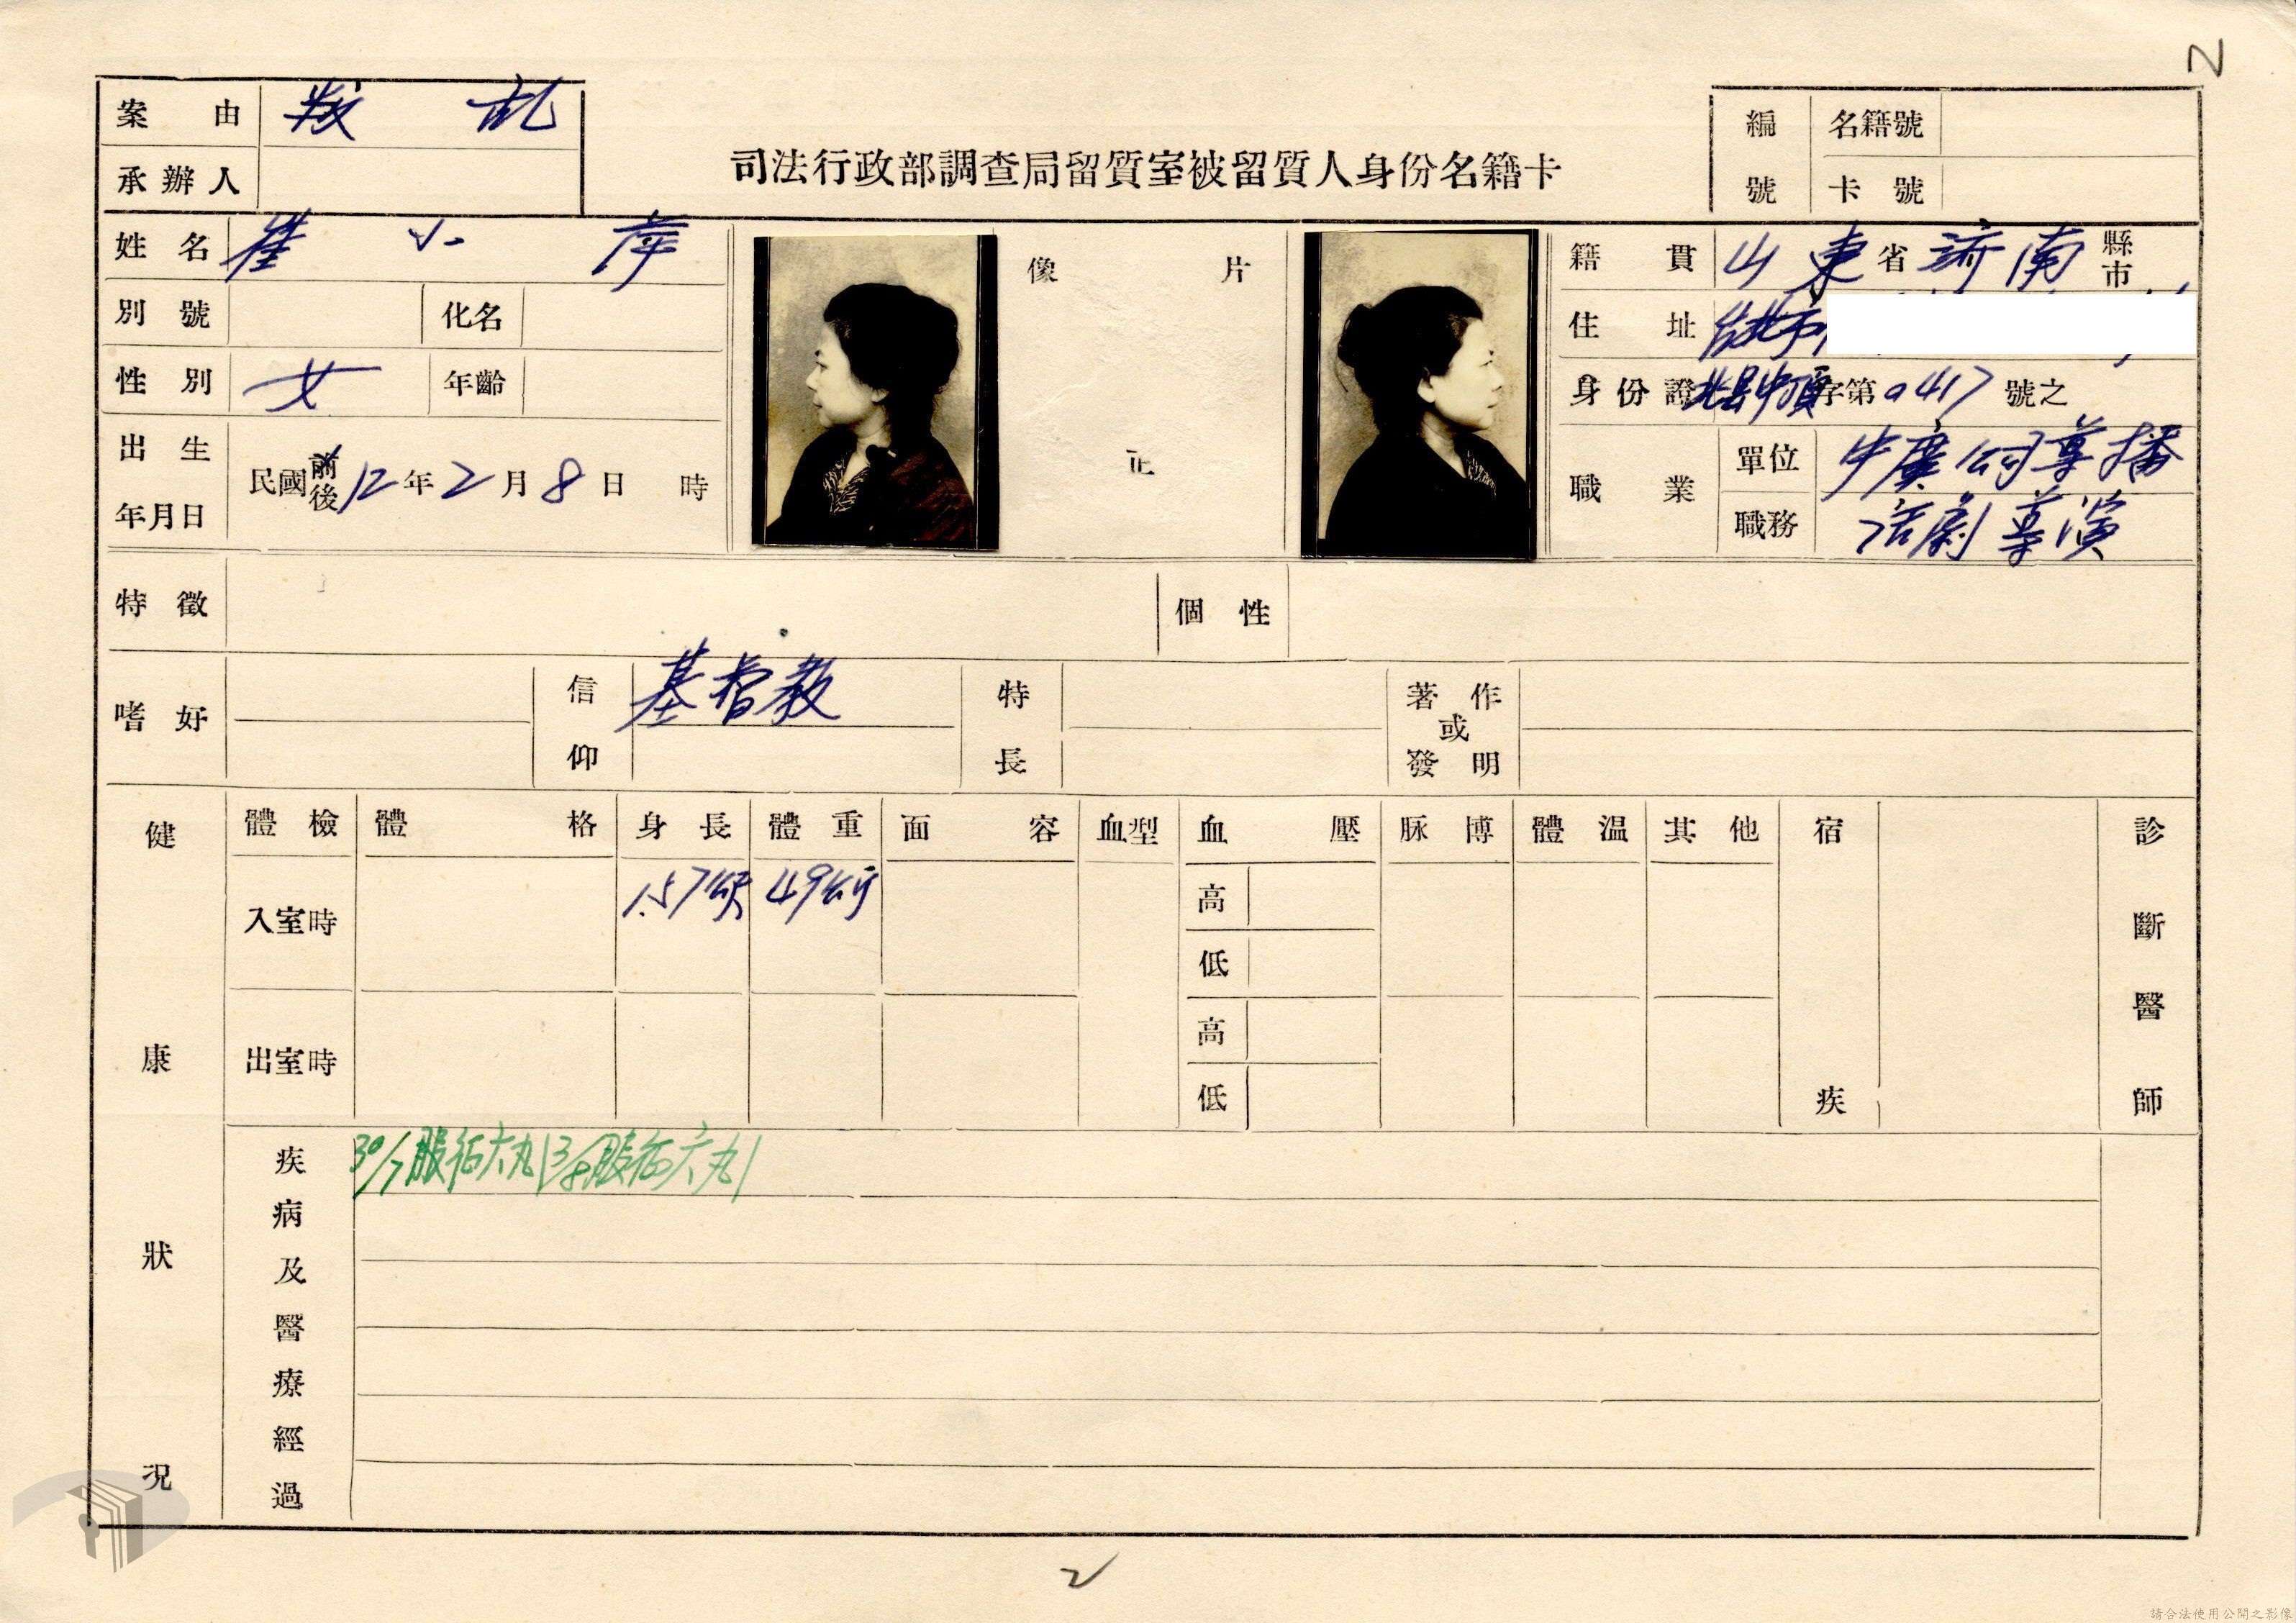 2
案由 叛乱
承辦人
司法行政部調查局留質室被留質人身份名籍卡
編號 名籍號
卡號
姓名 崔小萍
別號 化名
性別 女 年齡
出生年月日 民國前後12年2月8日 時
像片
正
籍貫 山東省濟南縣市
住址 台北市
身份證 北县中頂字第0417號之
職業 單位 中廣公司導播
職務 话劇導演
特徵 個性
嗜好 信仰 基督教 特長 著作或發明
健康狀況
體檢 體格 身長 體重 面容 血型 血壓 脉博 體温 其他 宿疾 診斷醫師
入室時 1.57公尺 49公斤 高
低
出室時 高
低
疾病及醫療經過 30/7服 六丸 3/8服 六丸
2
請合法使用公開之影像